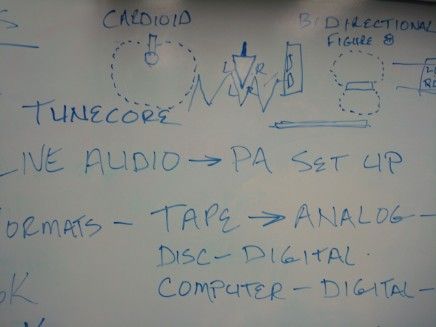 CARDIOID
BIDIRECTIONAL
FIGURE 8
L R
TUNECORE
LIVE AUDIO → PA SET UP
FORMATS - TAPE → ANALOG -
DISC - DIGITAL.
COMPUTER - DIGITAL -
OK